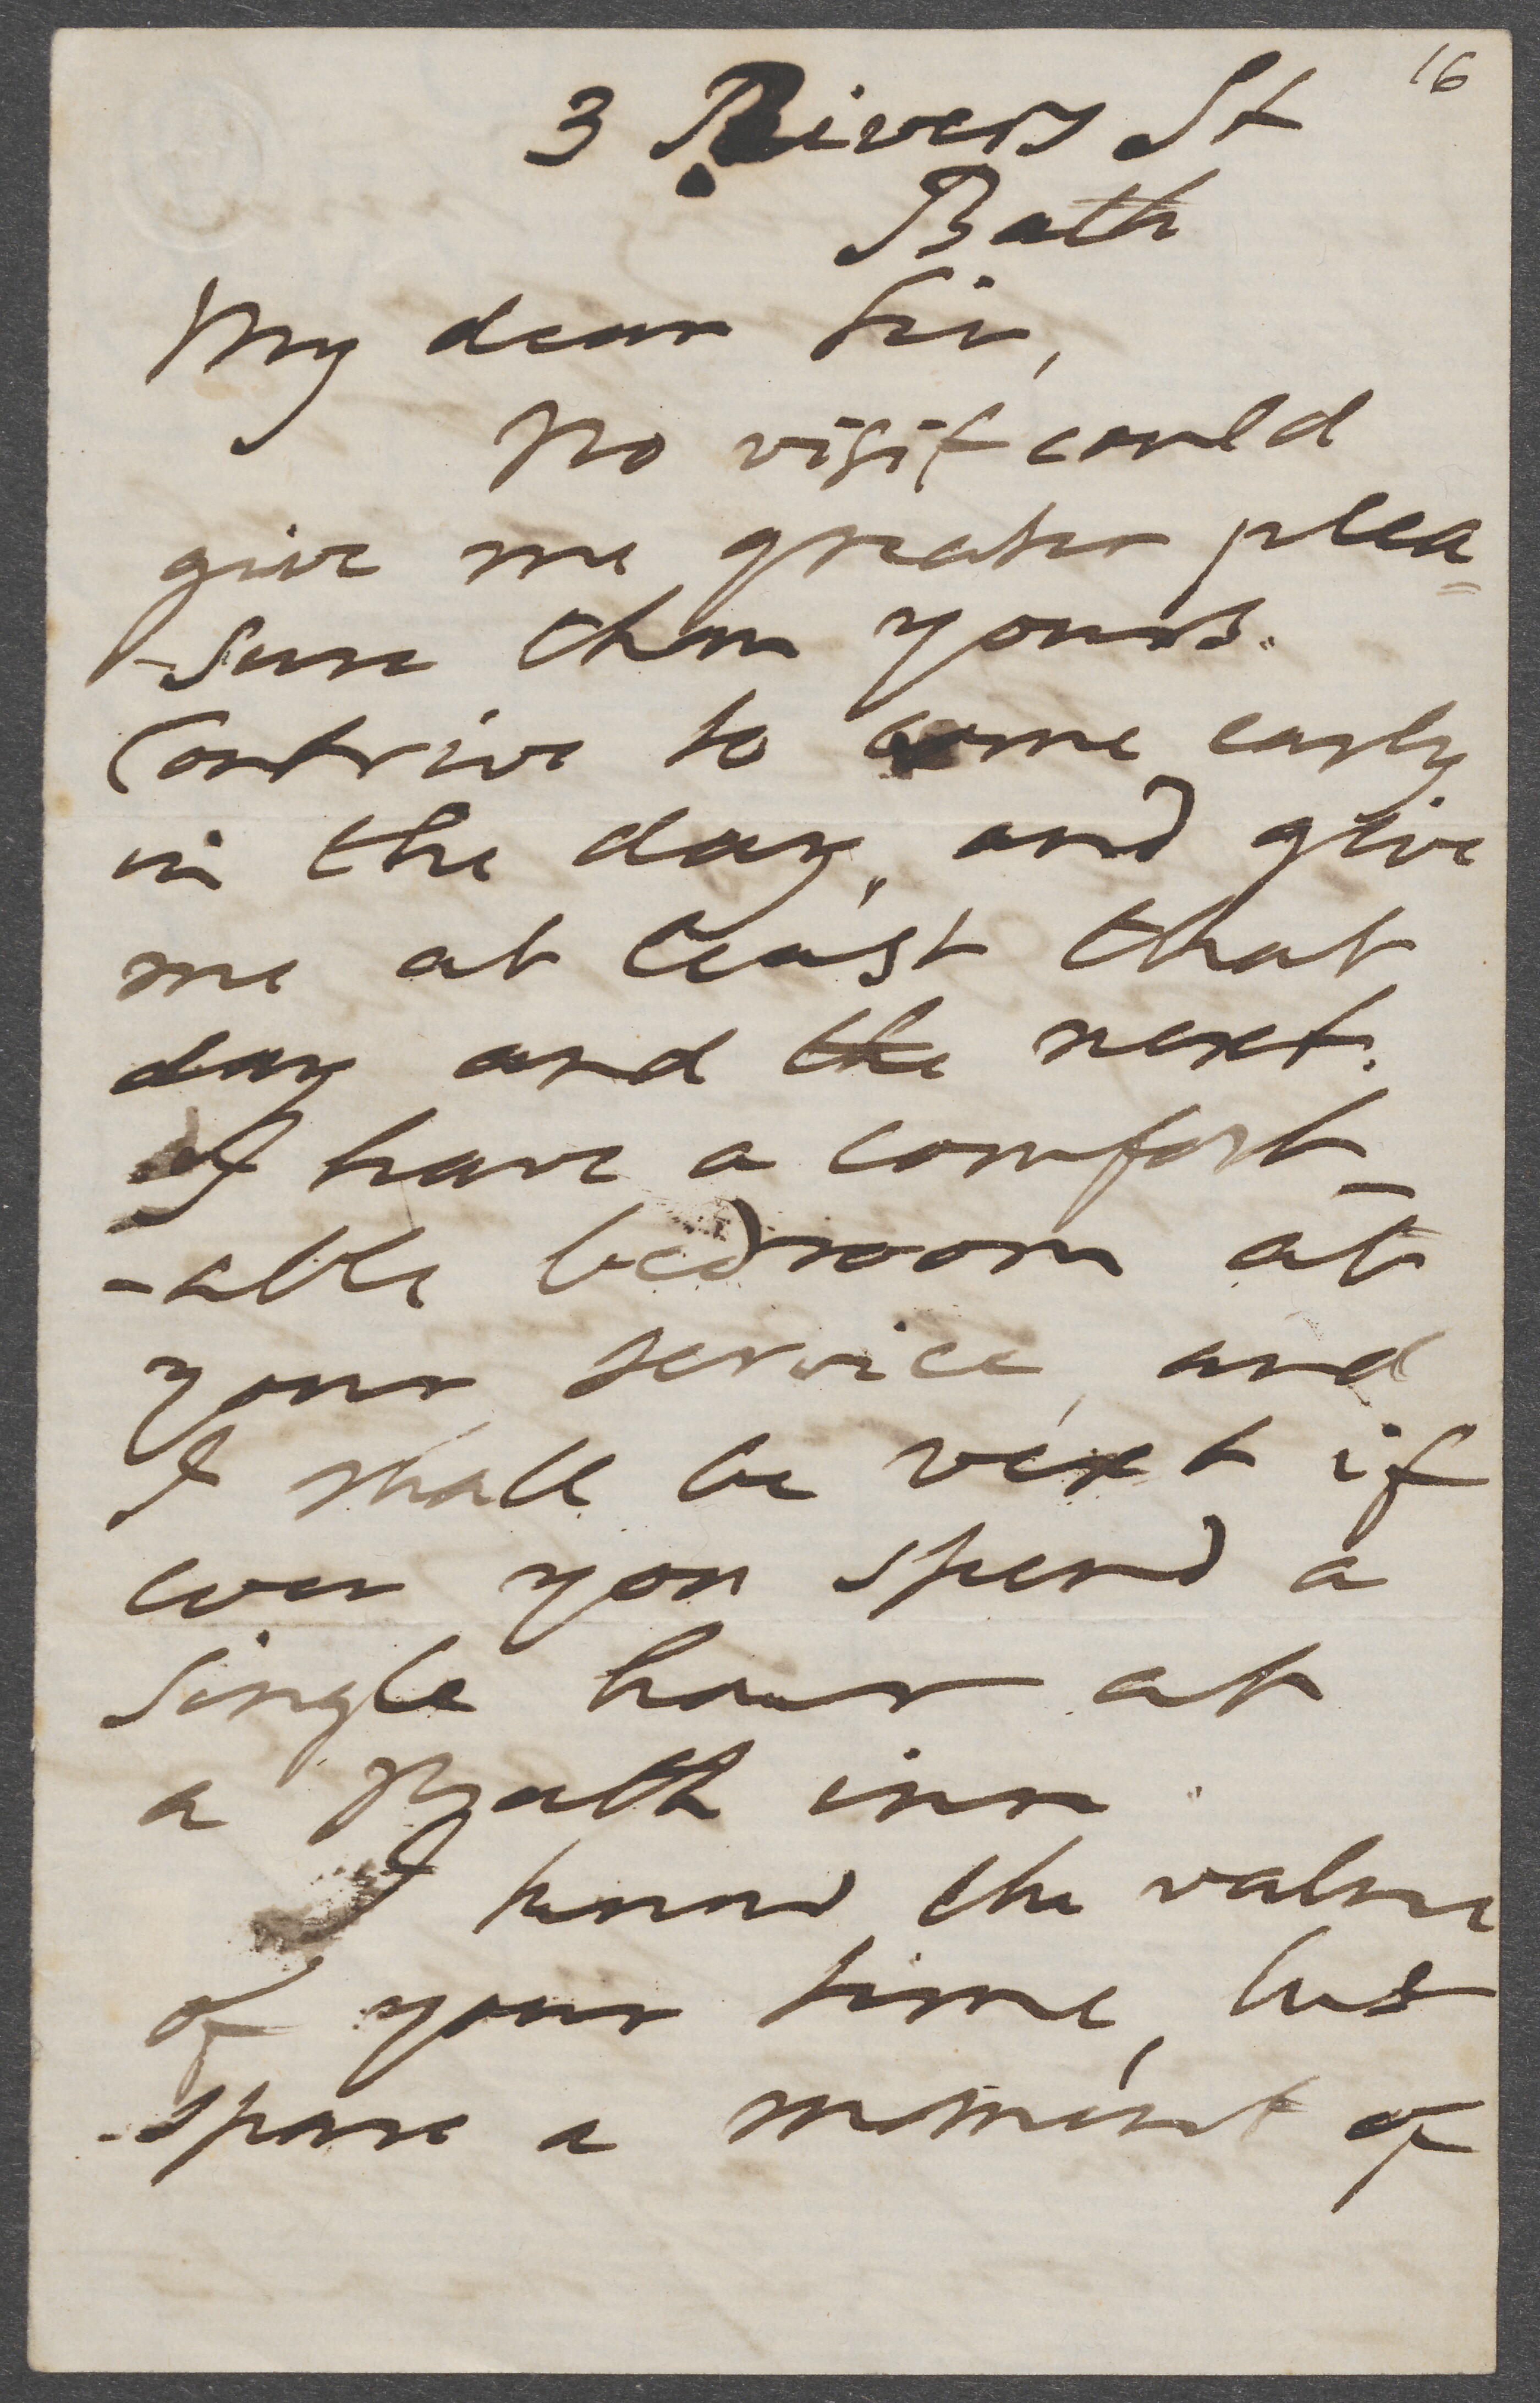 16
3 Rivers St
Bath
My dear Sir,
No visit could
give me greater plea=
-sure than yours.
Contrive to come early
in the day, and give
me at least that
day and the next.
I have a comfort-
-able bedroom at
your service, and
I shall be vext if
ever you spend a
single hour at
a Bath inn.
I know the value
of your time, but
spare a moment of